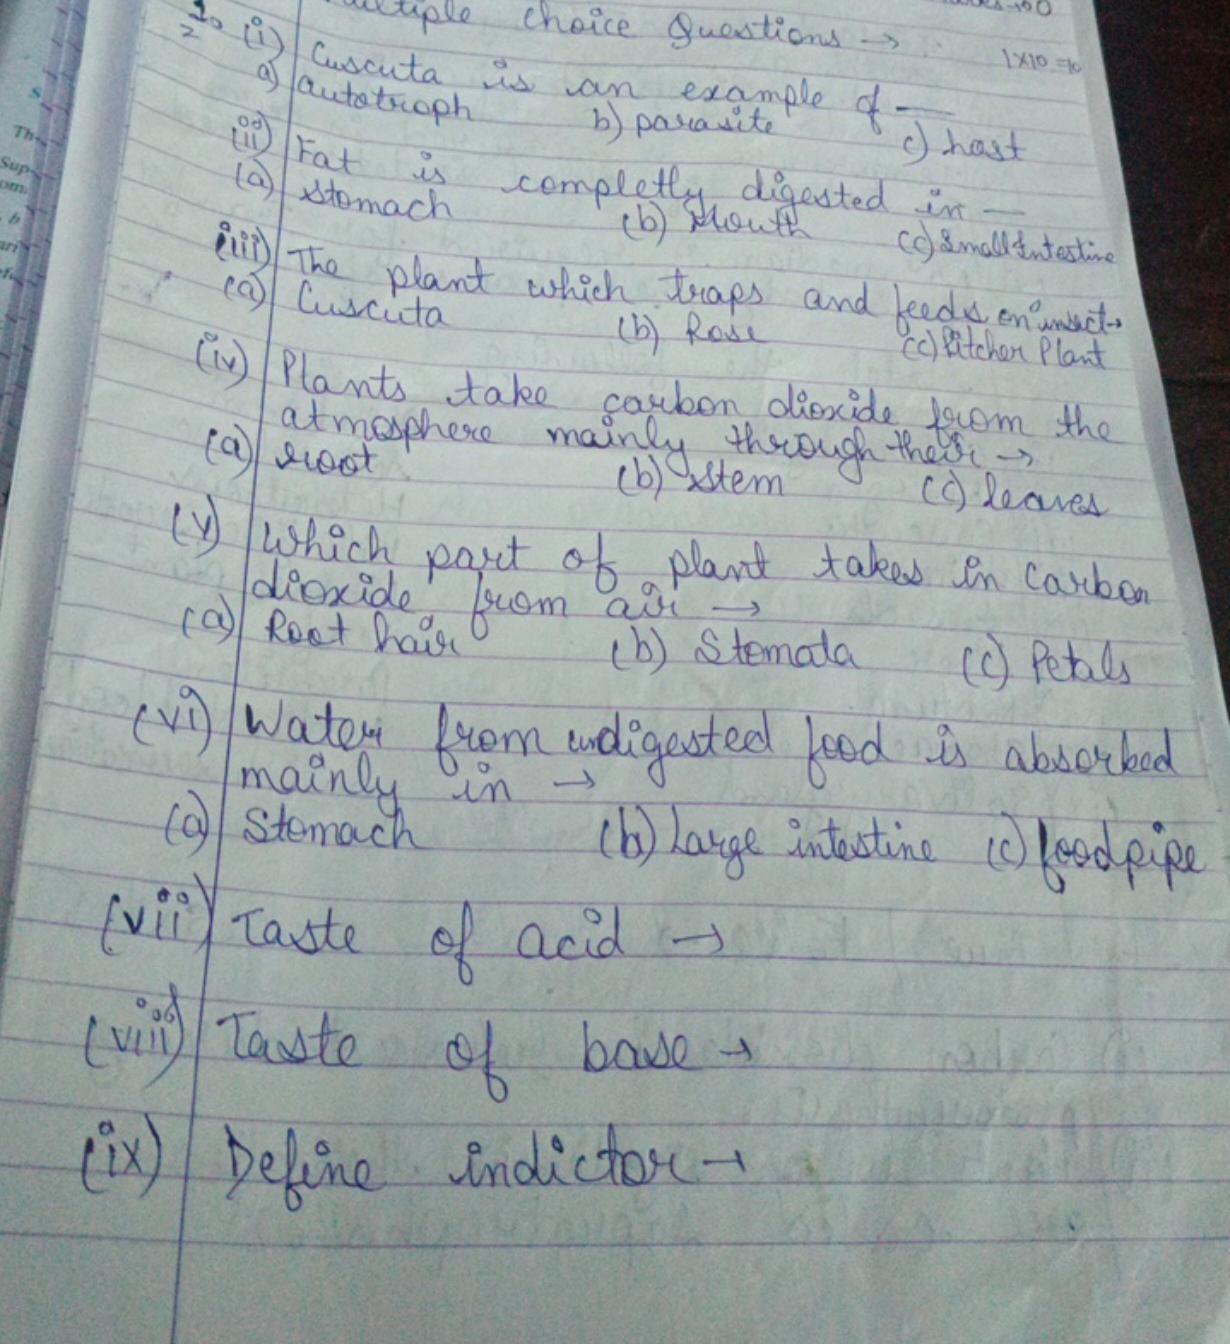 Multiple choice Questions →
1×10=10
(i) Cuscuta is an example of —
a) autotroph b) parasite c) host
(ii) Fat is completly digested in —
(a) stomach (b) Mouth (c) Small Intestine
(iii) The plant which traps and feeds on insect→
(a) Cuscuta (b) Rose (c) Pitcher Plant
(iv) Plants take carbon dioxide from the
atmosphere mainly through their →
(a) root (b) stem (c) leaves
(v) Which part of plant takes in Carbon
dioxide from air →
(a) Root hair (b) Stomata (c) Petals
(vi) Water from undigested food is absorbed
mainly in →
(a) Stomach (b) Large intestine (c) foodpipe
(vii) Taste of acid →
(viii) Taste of base →
(ix) Define indictor →